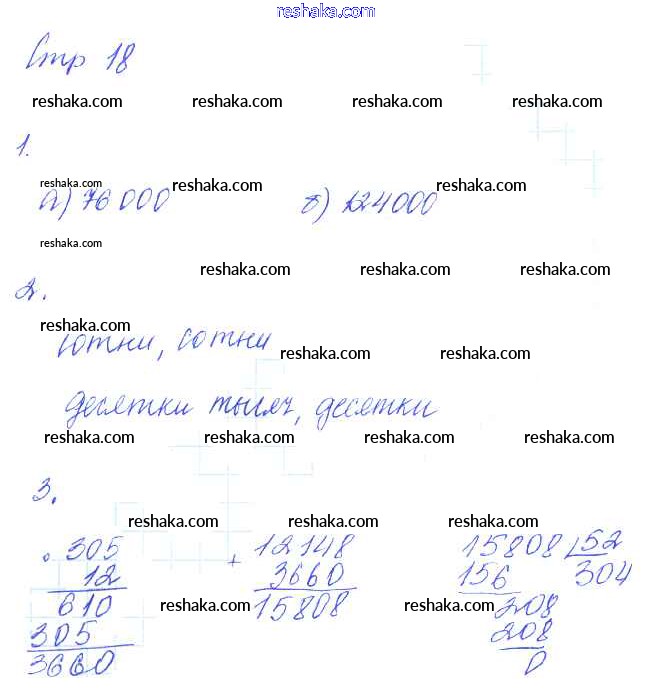 reshaka.com
Стр 18
reshaka.com reshaka.com reshaka.com reshaka.com
1.
reshaka.com reshaka.com reshaka.com
а) 76 000 б) 124000
reshaka.com
reshaka.com reshaka.com reshaka.com
2.
reshaka.com
сотни, сотни
reshaka.com reshaka.com
десятки тысяч, десятки
reshaka.com reshaka.com reshaka.com reshaka.com
3.
reshaka.com reshaka.com reshaka.com
305 + 12148 15808 52
12 3660 156 304
610 15808 208
reshaka.com reshaka.com
305 208
3660 0